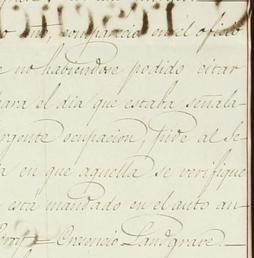 uno, comparecio en el oficio
no habiendose podido citar
para el dia que estaba señala-
urgente ocupacion, pide al Se-
en que aquella se verifique
está mandado en el auto an-
Cresencio Landgrave